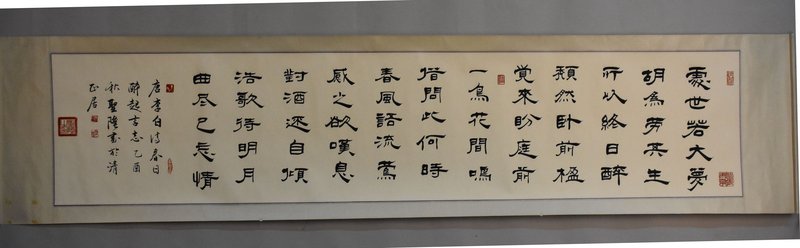 處世若大夢
胡為勞其生
所以終日醉
頹然臥前楹
覺來盼庭前
一鳥花間鳴
借問此何時
春風語流鶯
感之欲嘆息
對酒還自傾
浩歌待明月
曲盡已忘情
唐李白詩春日
醉起言志乙酉
秋聖書於清
正居